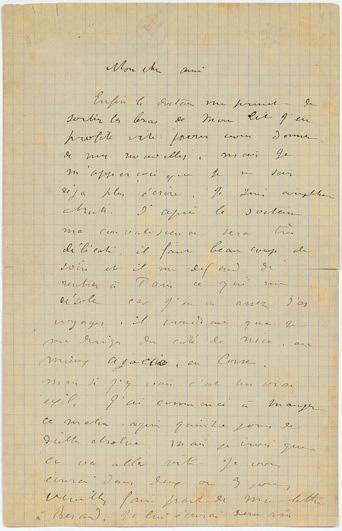 Mon cher ami
Enfin le docteur me permet de
sortir les bras de mon lit j'en
profite vite pour vous donner
de mes nouvelles, mais je
m'aperçois que je ne sais
déja plus écrire. Je suis
abruti. D'après le docteur
ma convalescence sera très
délicate, il faut beaucoup de
soins et il me défend de
rentrer à Paris ce qui me
désole car j'en ai assez des
voyages, il voudrait que je
me dirige du côté de Nice, ou
mieux Ajaccio, en Corse.
mais si j'y vais c'est un vrai
exil. J'ai commencé à manger
ce matin après quinze jours de
diète absolue mais je crois que
ça va aller vite. Je vous
écrirai dans deux ou 3 jours
veuillez faire part de ma lettre
à Je lui écrirai demain